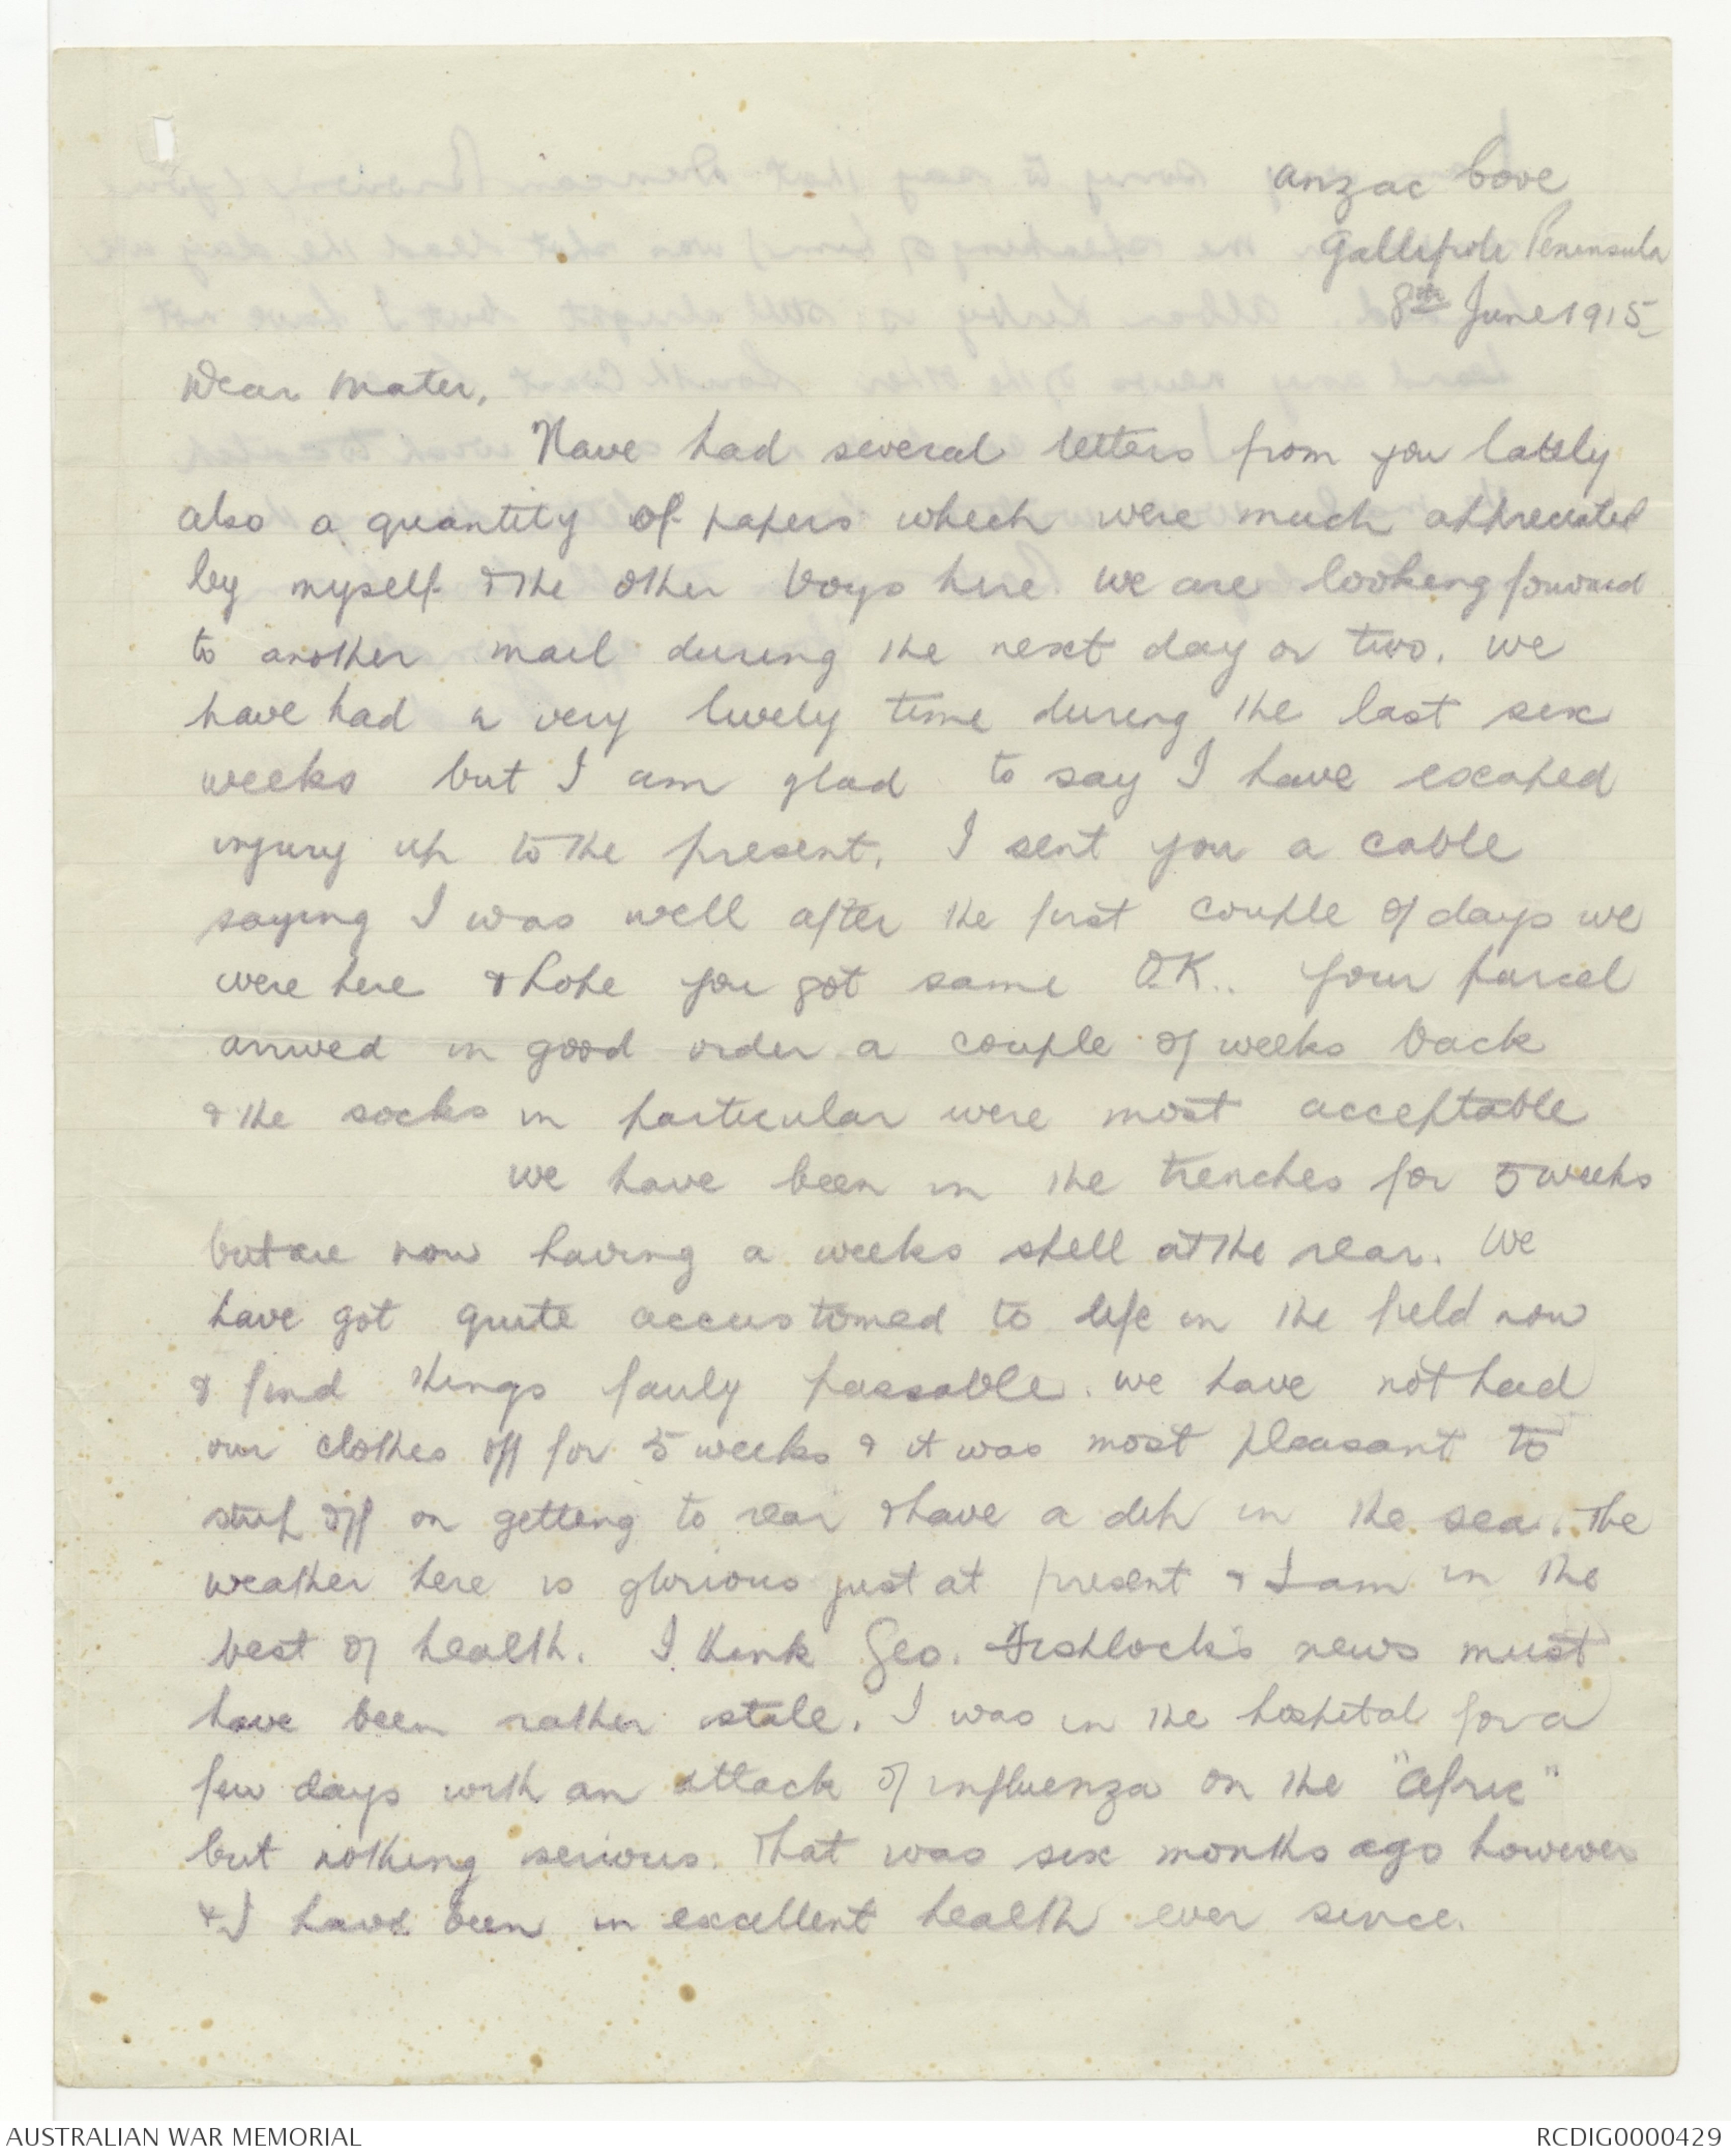 Anzac Cove
Gallipoli Peninsula
8th June 1915
Dear Mater,
Have had several letters from you lately
also a quantity of papers which were much appreciated
by myself & the other boys here. We are looking forward
to another mail during the next day or two. We
have had a very lively time during the last six
weeks but I am glad to say I have escaped
injury up to the present. I sent you a cable
saying I was well after the first couple of days we
were here & hope you got same OK.. Your parcel
arrived in good order a couple of weeks back
& the socks in particular were most acceptable
We have been in the trenches for 5 weeks
but are now having a weeks spell at the rear. We
have got quite accustomed to life in the field now
& find things fairly passable. We have not had
our clothes off for 5 weeks & it was most pleasant to
strip off on getting to rear & have a dip in the sea. The
weather here is glorious just at present & I am in the
best of health. I think Geo. Fishlock's news must
have been rather stale. I was in the hospital for a
few days with an attack of influenza on the "Afric"
but nothing serious. That was six months ago however
& I have been in excellent health ever since.
AUSTRALIAN WAR MEMORIAL
RCDIG0000429